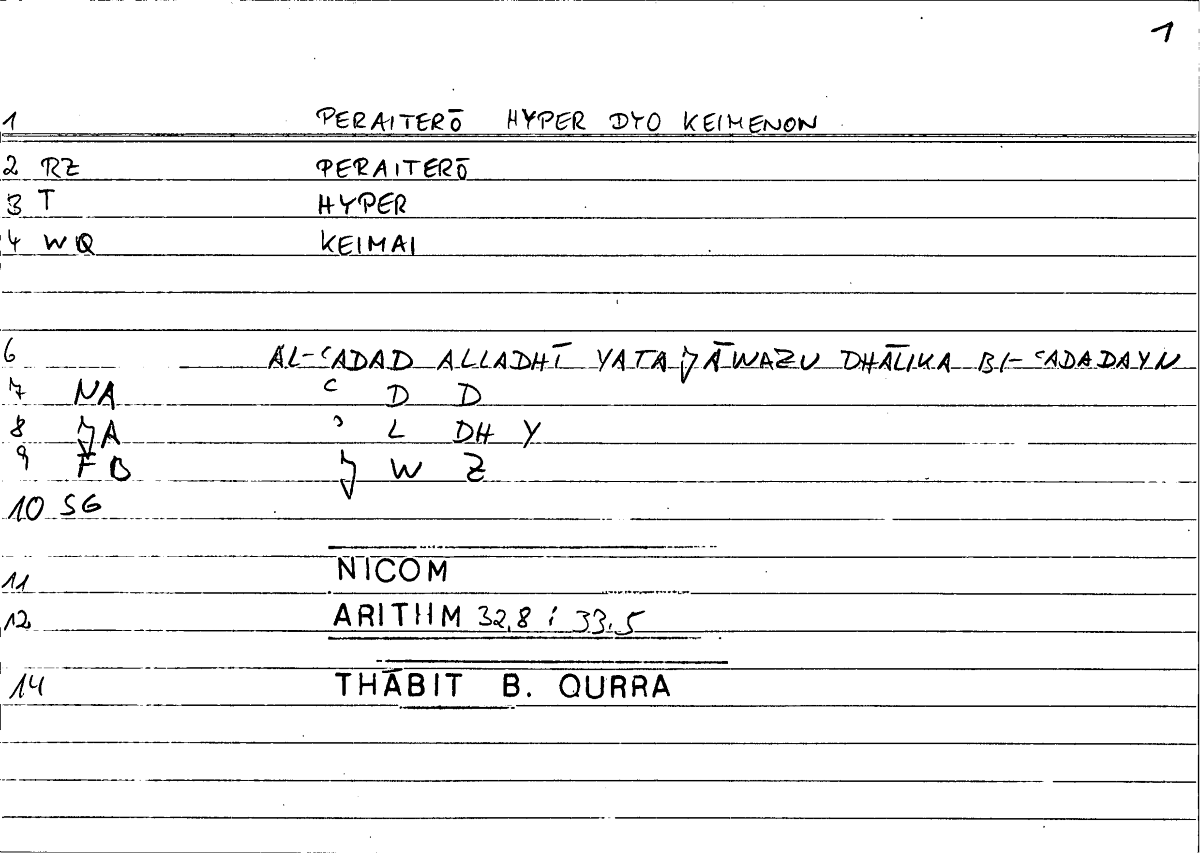 1
1 PERAITERŌ HYPER DYO KEIMENON
2 RZ PERAITERŌ
3 T HYPER
4 WQ KEIMAI
6 AL-ʿADAD ALLADHĪ YATAǦĀWAZU DHĀLIKA BI-ʿADADAYN
7 NA ʿ D D
8 ǦA ʾ L DH Y
9 FB Ǧ W Z
10 SG
11 NICOM
12 ARITHM 32,8 ; 33,5
14 THĀBIT B. QURRA